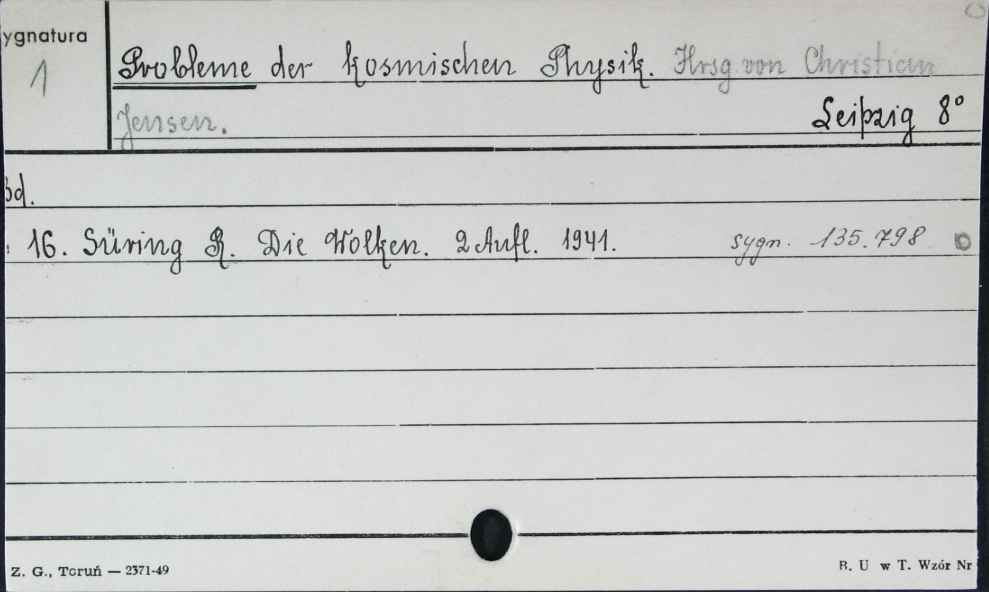 ygnatura
1
Probleme der kosmischen Physik. Hrsg. von Christian
Jensen.
Leipzig 8°
Bd.
16. Süring R. Die Wolken. 2 Aufl. 1941. sygn. 135.798
Z. G., Toruń — 2371-49
B. U w T. Wzór Nr